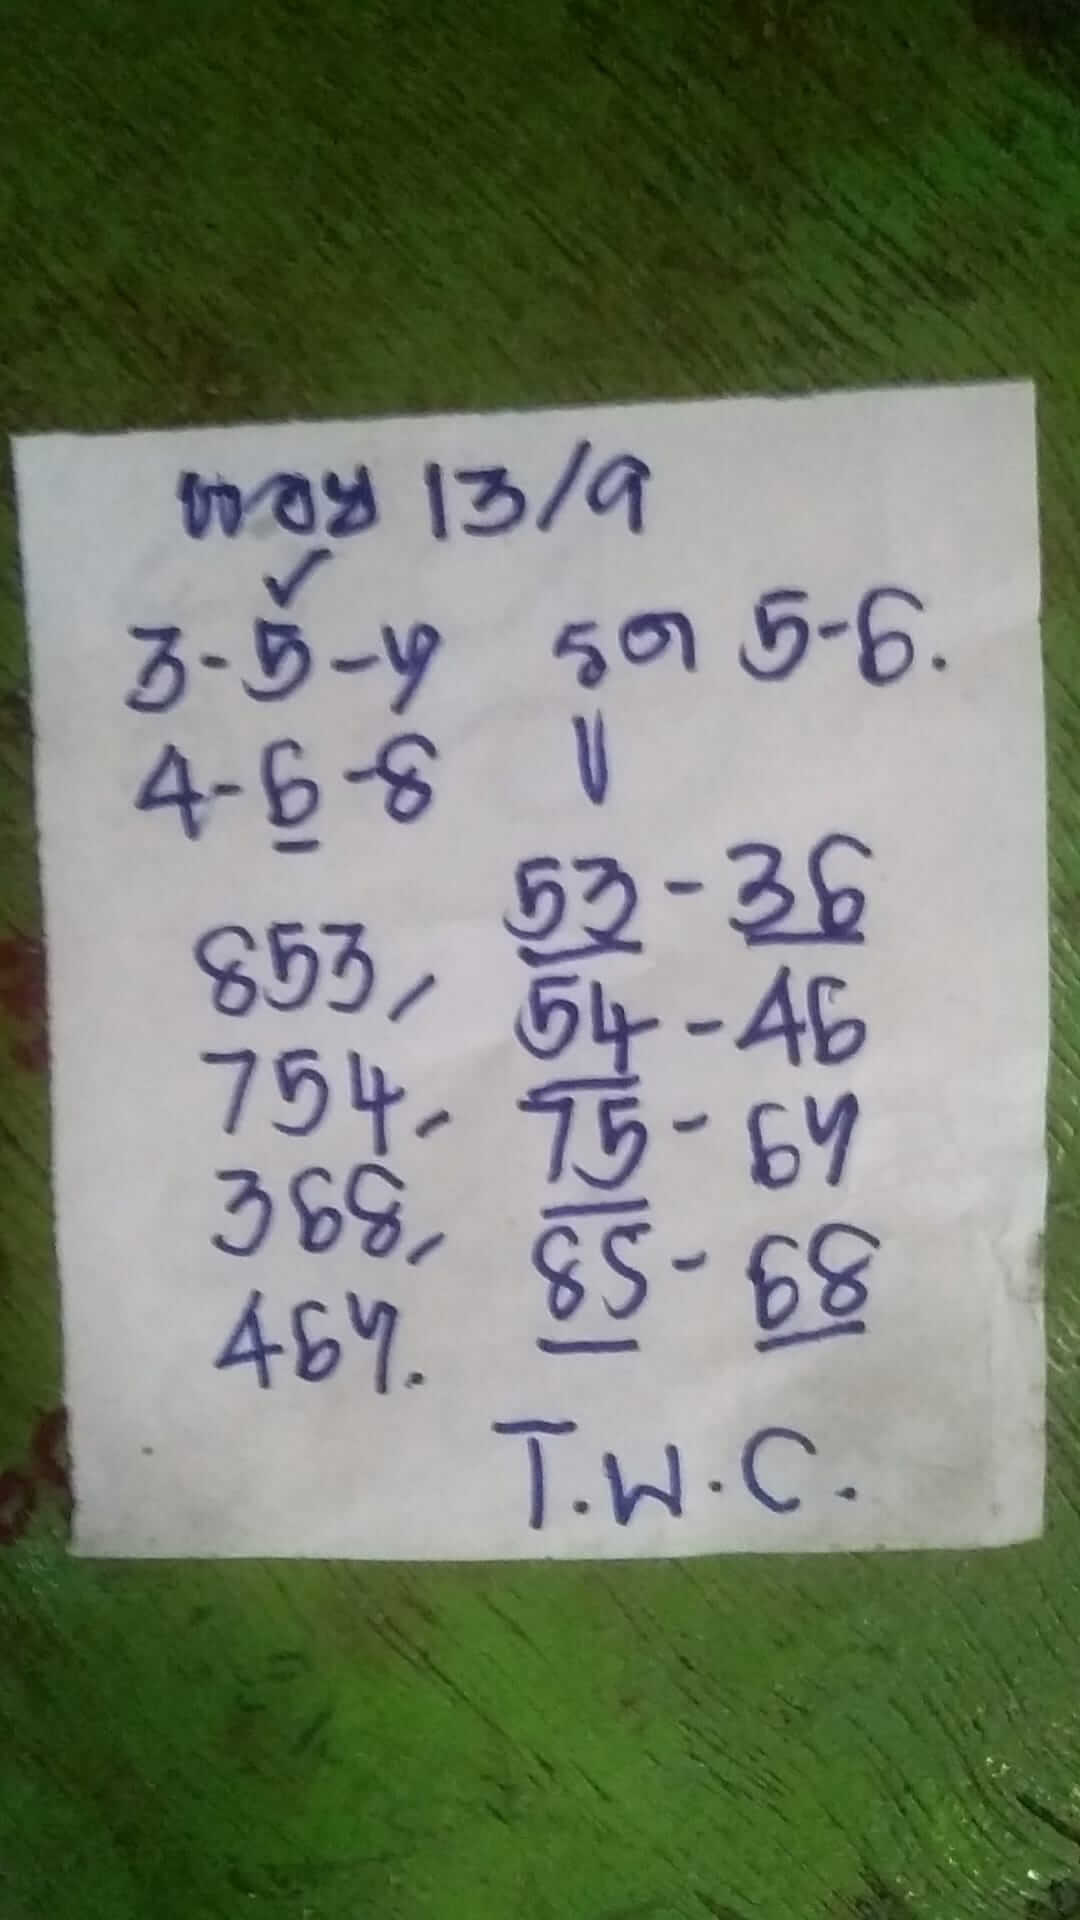 ฮอย 13/9
3-5-7 รูด 5-6.
4-6-8
53-36
853, 54-46
754, 75-67
368, 85-68
467.
T.W.C.